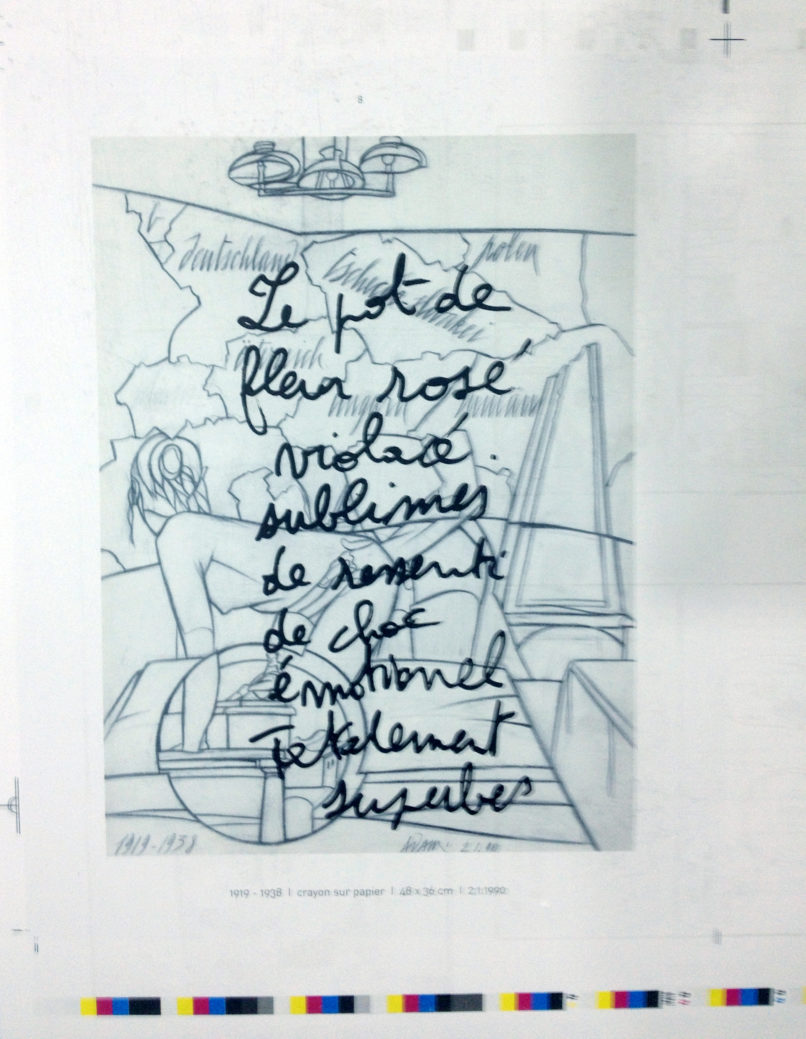 8
deutschland
polen
Le pot de
fleur rosé
violacé.
sublimes
de ressenti
de choc
émotionel
Totalement
superbes
1919-1938
ADAMI 2.1.90
1919 - 1938 | crayon sur papier | 48 x 36 cm | 2.1.1990